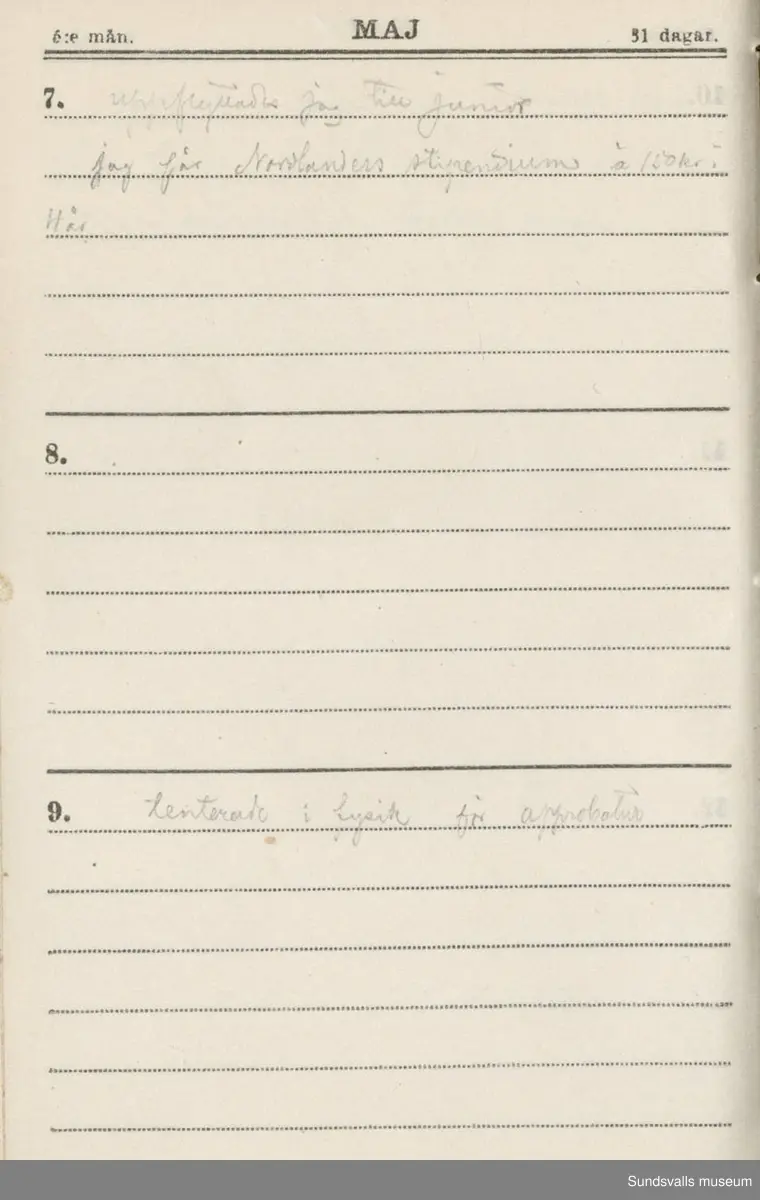 5:e mån. MAJ 31 dagar.
7. uppflyttades jag till junior
jag får Norrlanders stipendium à 150 kr i
4 år
8.
9. tenterade i fysik för approbatur
Sundsvalls museum